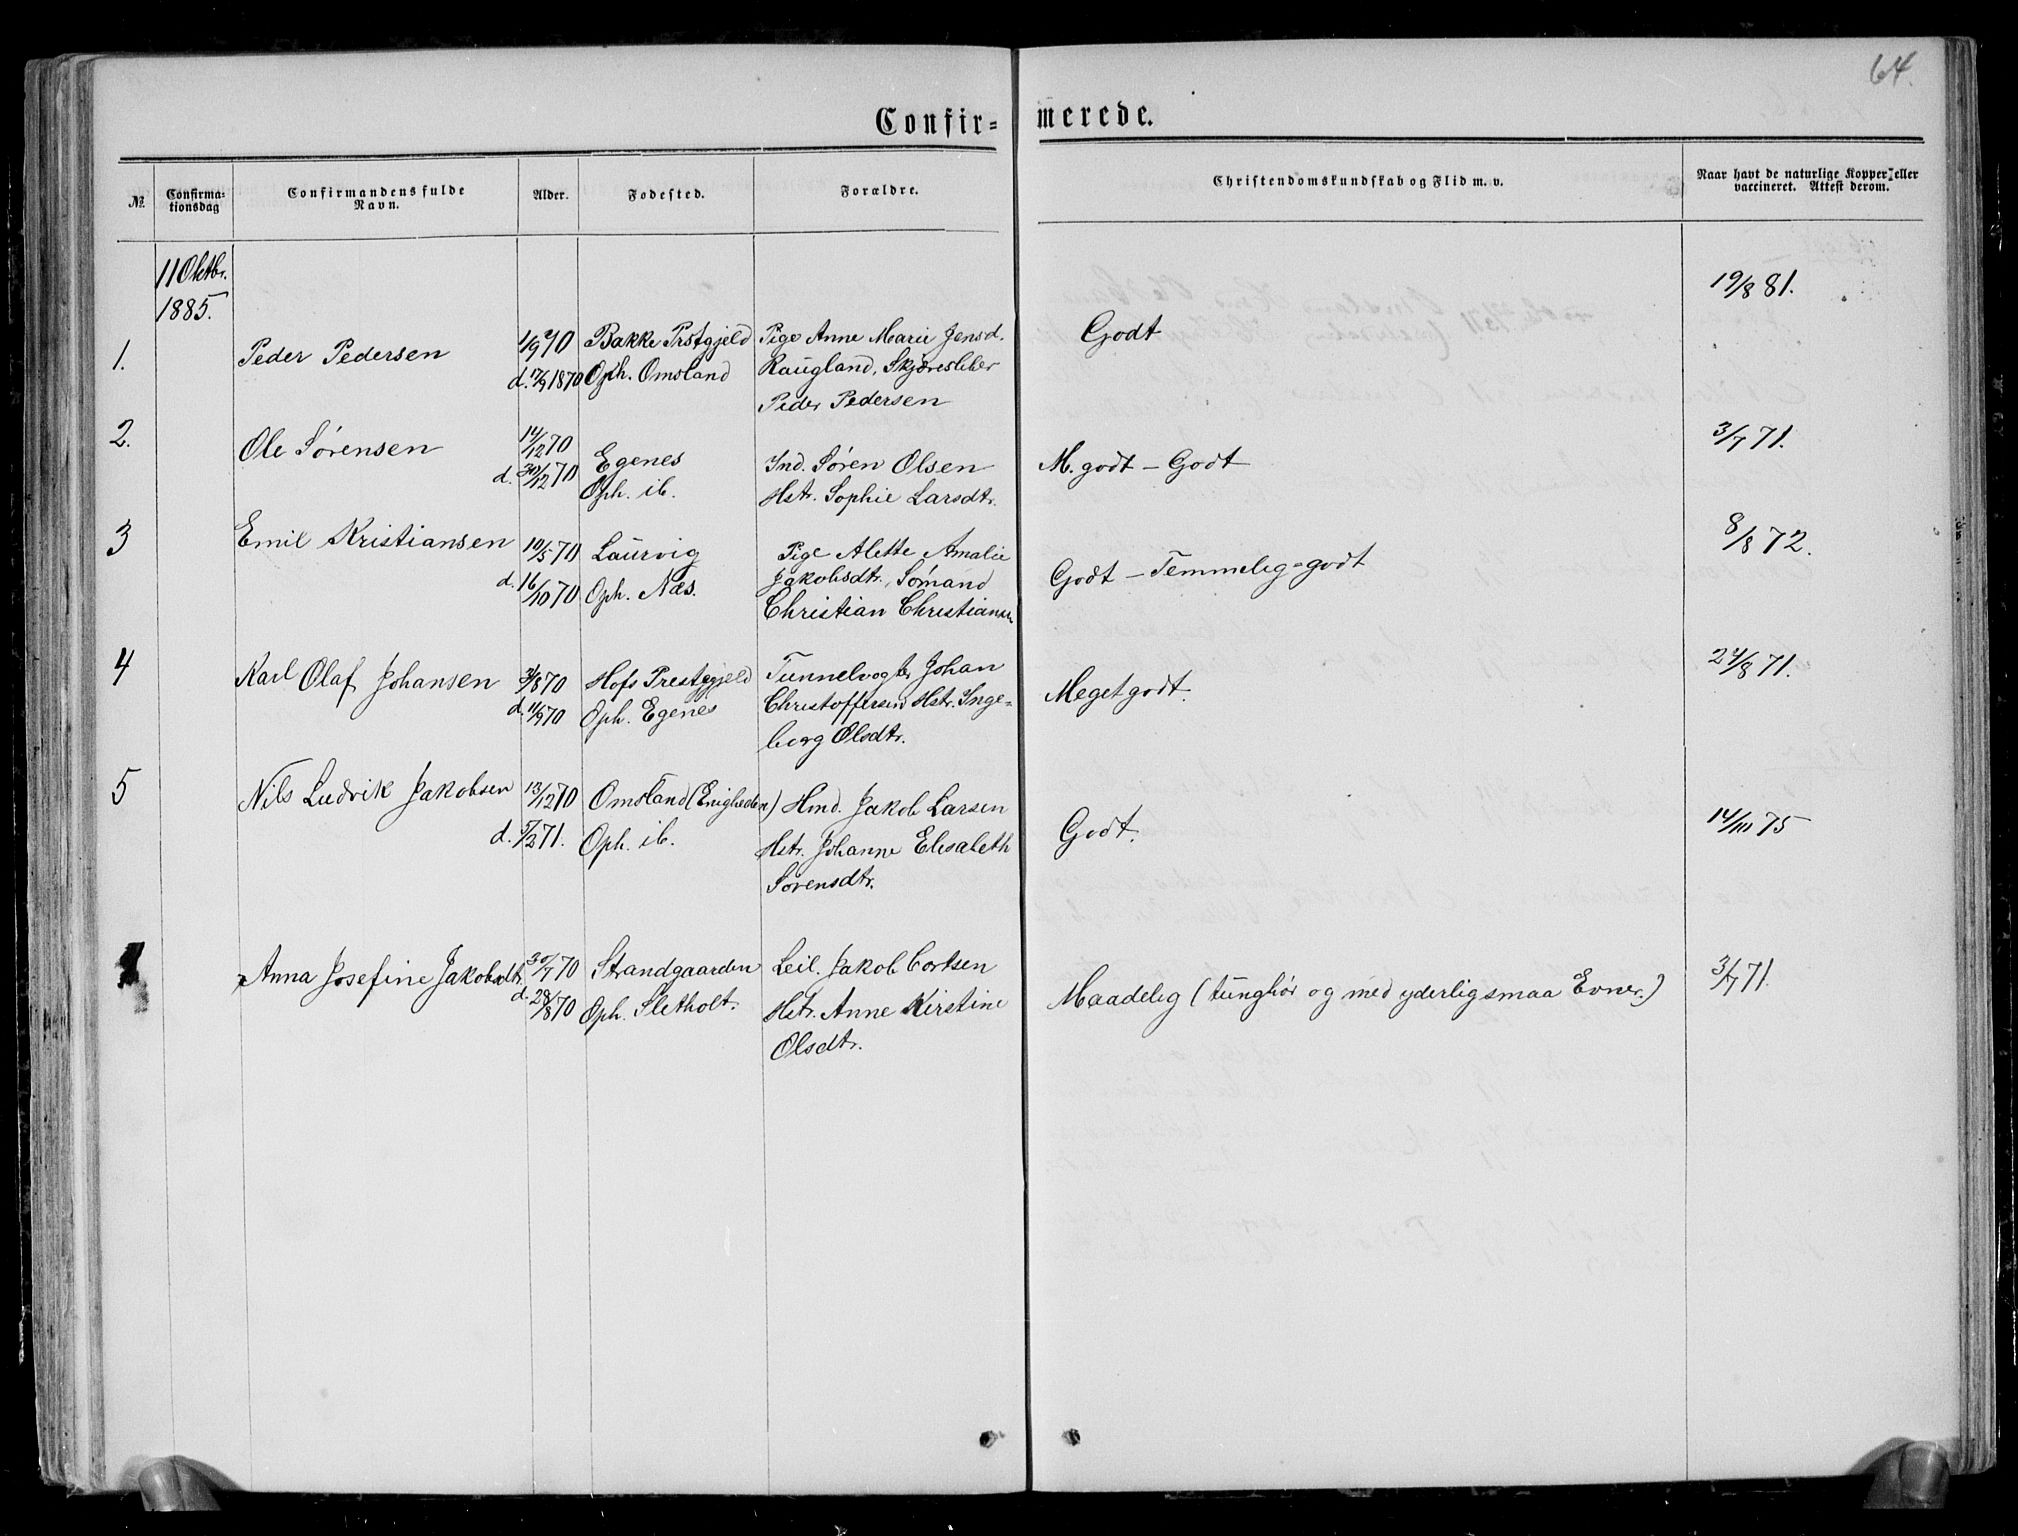 64.
Confir= merede.
№ Confirma= tionsdag Confirmandens fulde Navn. Alder. Fodested. Forældre. Christendomskundskab og Flid m. v. Naar havt de naturlige Kopper, eller vaccineret. Attest derom.
11 Oktbr.
1885.
1. Peder Pedersen 1/9 70 Bakke Prstgjeld Pige Anne Marie Jensd. Godt 19/8 81.
d. 17/9 1870 Oph. Omsland Raugland,
Peder Pedersen
2. Ole Sørensen 14/12 70 Egenes Ind. Søren Olsen M. godt – Godt 3/7 71.
d. 30/12 70 Oph. ib. Hstr. Sophie Larsdtr.
3 Emil Kristiansen 10/5 70 Laurvig Pige Alette Amalie Godt – Temmelig=godt 8/8 72.
d. 16/10 70 Oph. Næs. Jakobsdtr., Sømand
Christian Christiansen
4 Karl Olaf Johansen 3/8 70 Hofs Prestegjeld Tunnelvogter Johan Meget godt. 24/8 71.
d. 11/9 70 Oph. Egenes Christoffersen Hstr. Inge=
borg Olsdtr.
5 Nils Ludvik Jakobsen 13/12 70 Omsland (Enigheden) Hmd. Jakob Larsen Godt. 14/10 75
d. 5/2 71. Oph. ib. Hstr. Johanne Elisabeth
Sørensdtr.
1 Anna Josefine Jakobsdtr. 30/7 70 Strandgaarden Leil. Jakob Cortsen Maadelig (tunghør og med yderlig smaa Evner.) 3/7 71.
d. 28/8 70 Oph. Sletholt. Hstr. Anne Kirstine
Olsdtr.